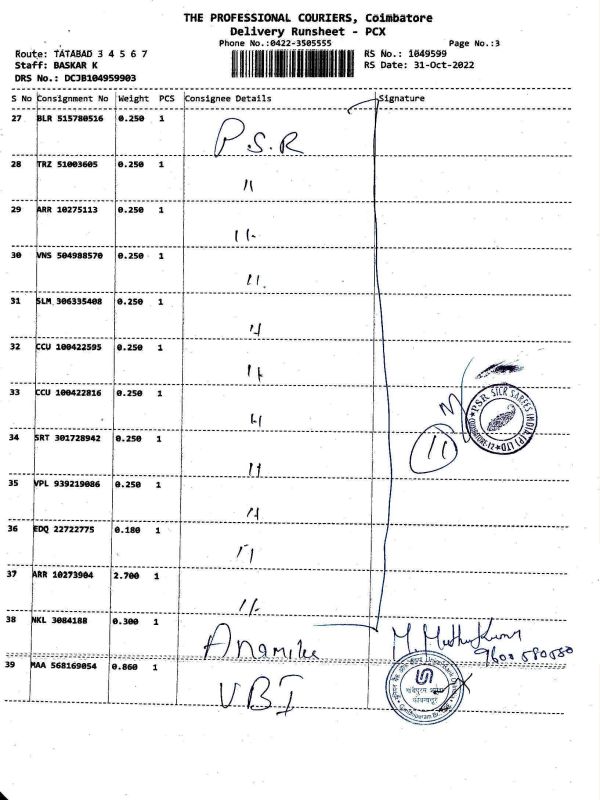 THE PROFESSIONAL COURIERS, Coimbatore
Delivery Runsheet - PCX
Phone No.:0422-3505555 Page No.:3
Route: TATABAD 3 4 5 6 7 RS No.: 1049599
Staff: BASKAR K RS Date: 31-Oct-2022
DRS No.: DCJB104959903
S No Consignment No Weight PCS Consignee Details Signature
27 BLR 515780516 0.250 1 P.S.R
28 TRZ 51003605 0.250 1 11
29 ARR 10275113 0.250 1 11
30 VNS 504988570 0.250 1 11
31 SLM 306335408 0.250 1 11
32 CCU 100422595 0.250 1 11
33 CCU 100422816 0.250 1 11
PSR SILK SAREES INDIA (P) LTD
COIMBATORE-12
11
34 SRT 301728942 0.250 1 11
35 VPL 939219086 0.250 1 11
36 EDQ 22722775 0.180 1 11
37 ARR 10273904 2.700 1 11
38 NKL 3084188 0.300 1 Anamika M. MuthuKumar
39 MAA 568169054 0.860 1 UBI